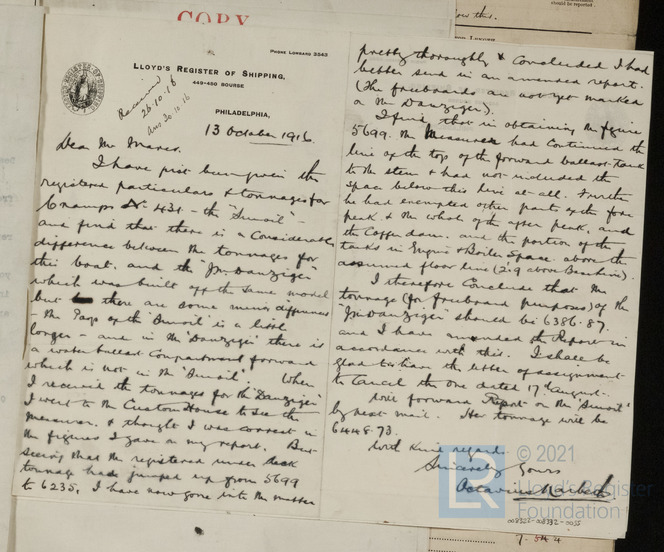 COPY
PHONE LOMBARD 3543
LLOYD'S REGISTER OF SHIPPING,
449-450 BOURSE
Received
26.10.16
Ans 30.10.16
PHILADELPHIA,
13 October 1916.
Dear Mr
I have just been given the
registered particulars & tonnages for
Cramps No 431 - the "Sunoil" -
and find that there is a considerable
difference between the tonnages for
this boat, and the "Jm Danziger"
which was built off the same model
but there are some minor differences
- the Poop of the "Sunoil" is a little
longer - and in the "Danziger" there is
a water ballast compartment forward
which is not in the "Sunoil". When
I received the tonnages for the "Danziger"
I went to the Custom House to see the
measurer, & thought I was correct in
the figures I gave in my report. But
seeing that the registered under deck
tonnage has jumped up from 5699
to 6235, I have now gone into the matter
pretty thoroughly & concluded I had
better send in an amended report.
(The freeboards are not yet marked
on the Danziger).
I find that in obtaining the figure
5699. the Measurer had continued the
line of the top of the forward ballast tank
to the stem & had not included the
space below this line at all. Further
he had exempted other parts of the fore
peak & the whole of the after peak, and
the Cofferdam, and the portion of the
tanks in Engine & Boiler space above the
assumed floor line (2'.9 above Baseline).
I therefore conclude that the
tonnage (for freeboard purposes) of the
"Jm Danziger" should be 6386.87.
and I have amended the Report in
accordance with this. I shall be
glad to have the letter of assignment
to cancel the one dated 17 August.
Will forward Report on the "Sunoil"
by next mail. Her tonnage will be
6448.73.
With kind regards
Sincerely Yours
Octavius Narbeth
LR
© 2021
Lloyd's Register
Foundation
7.544